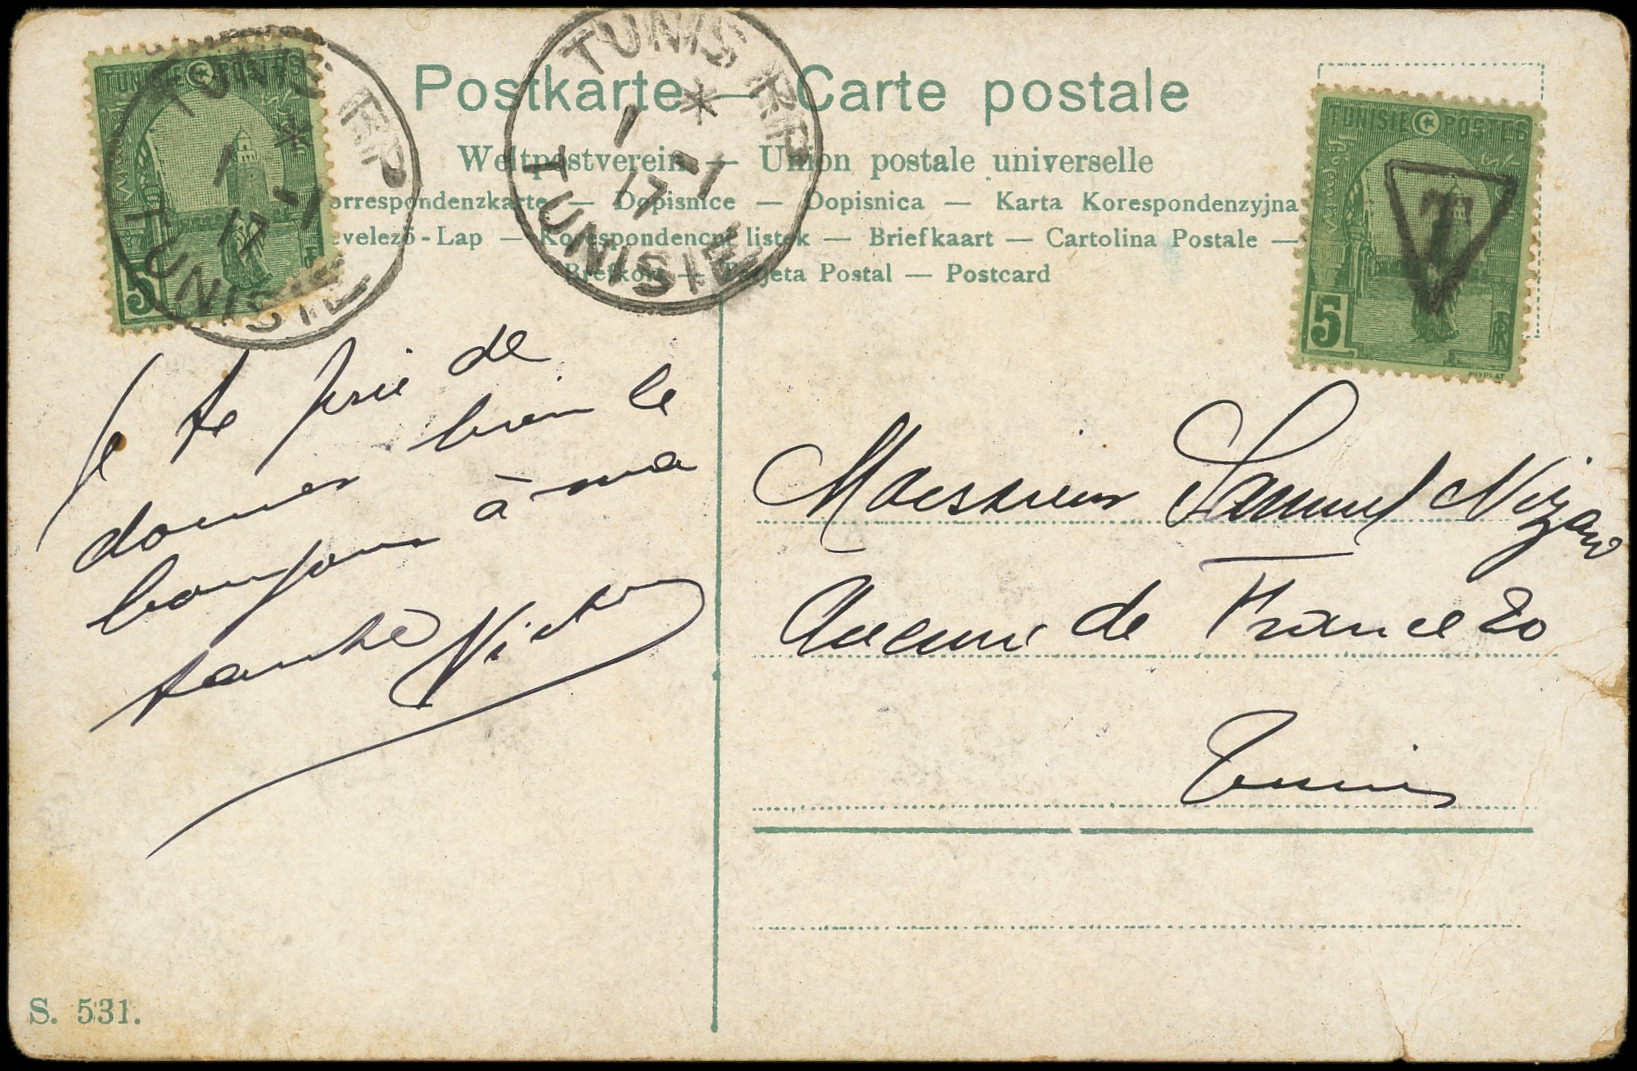 Postkarte — Carte postale
Weltpostverein — Union postale universelle
orrespondenzkarte — Dopisnice — Dopisnica — Karta Korespondenzyjna
evelező-Lap — Korespondenční listek — Briefkaart — Cartolina Postale —
Brefkort — Tarjeta Postal — Postcard
TUNISIE POSTES
5
TUNIS RP
1 -1
17
TUNISIE
TUNIS RP
1 -1
17
TUNISIE
TUNISIE POSTES
T
5
Je te prie de
donner bien le
bonjour à ma
tante Victor
Monsieur Samuel Nizard
Avenue de France 20
Tunis
S. 531.